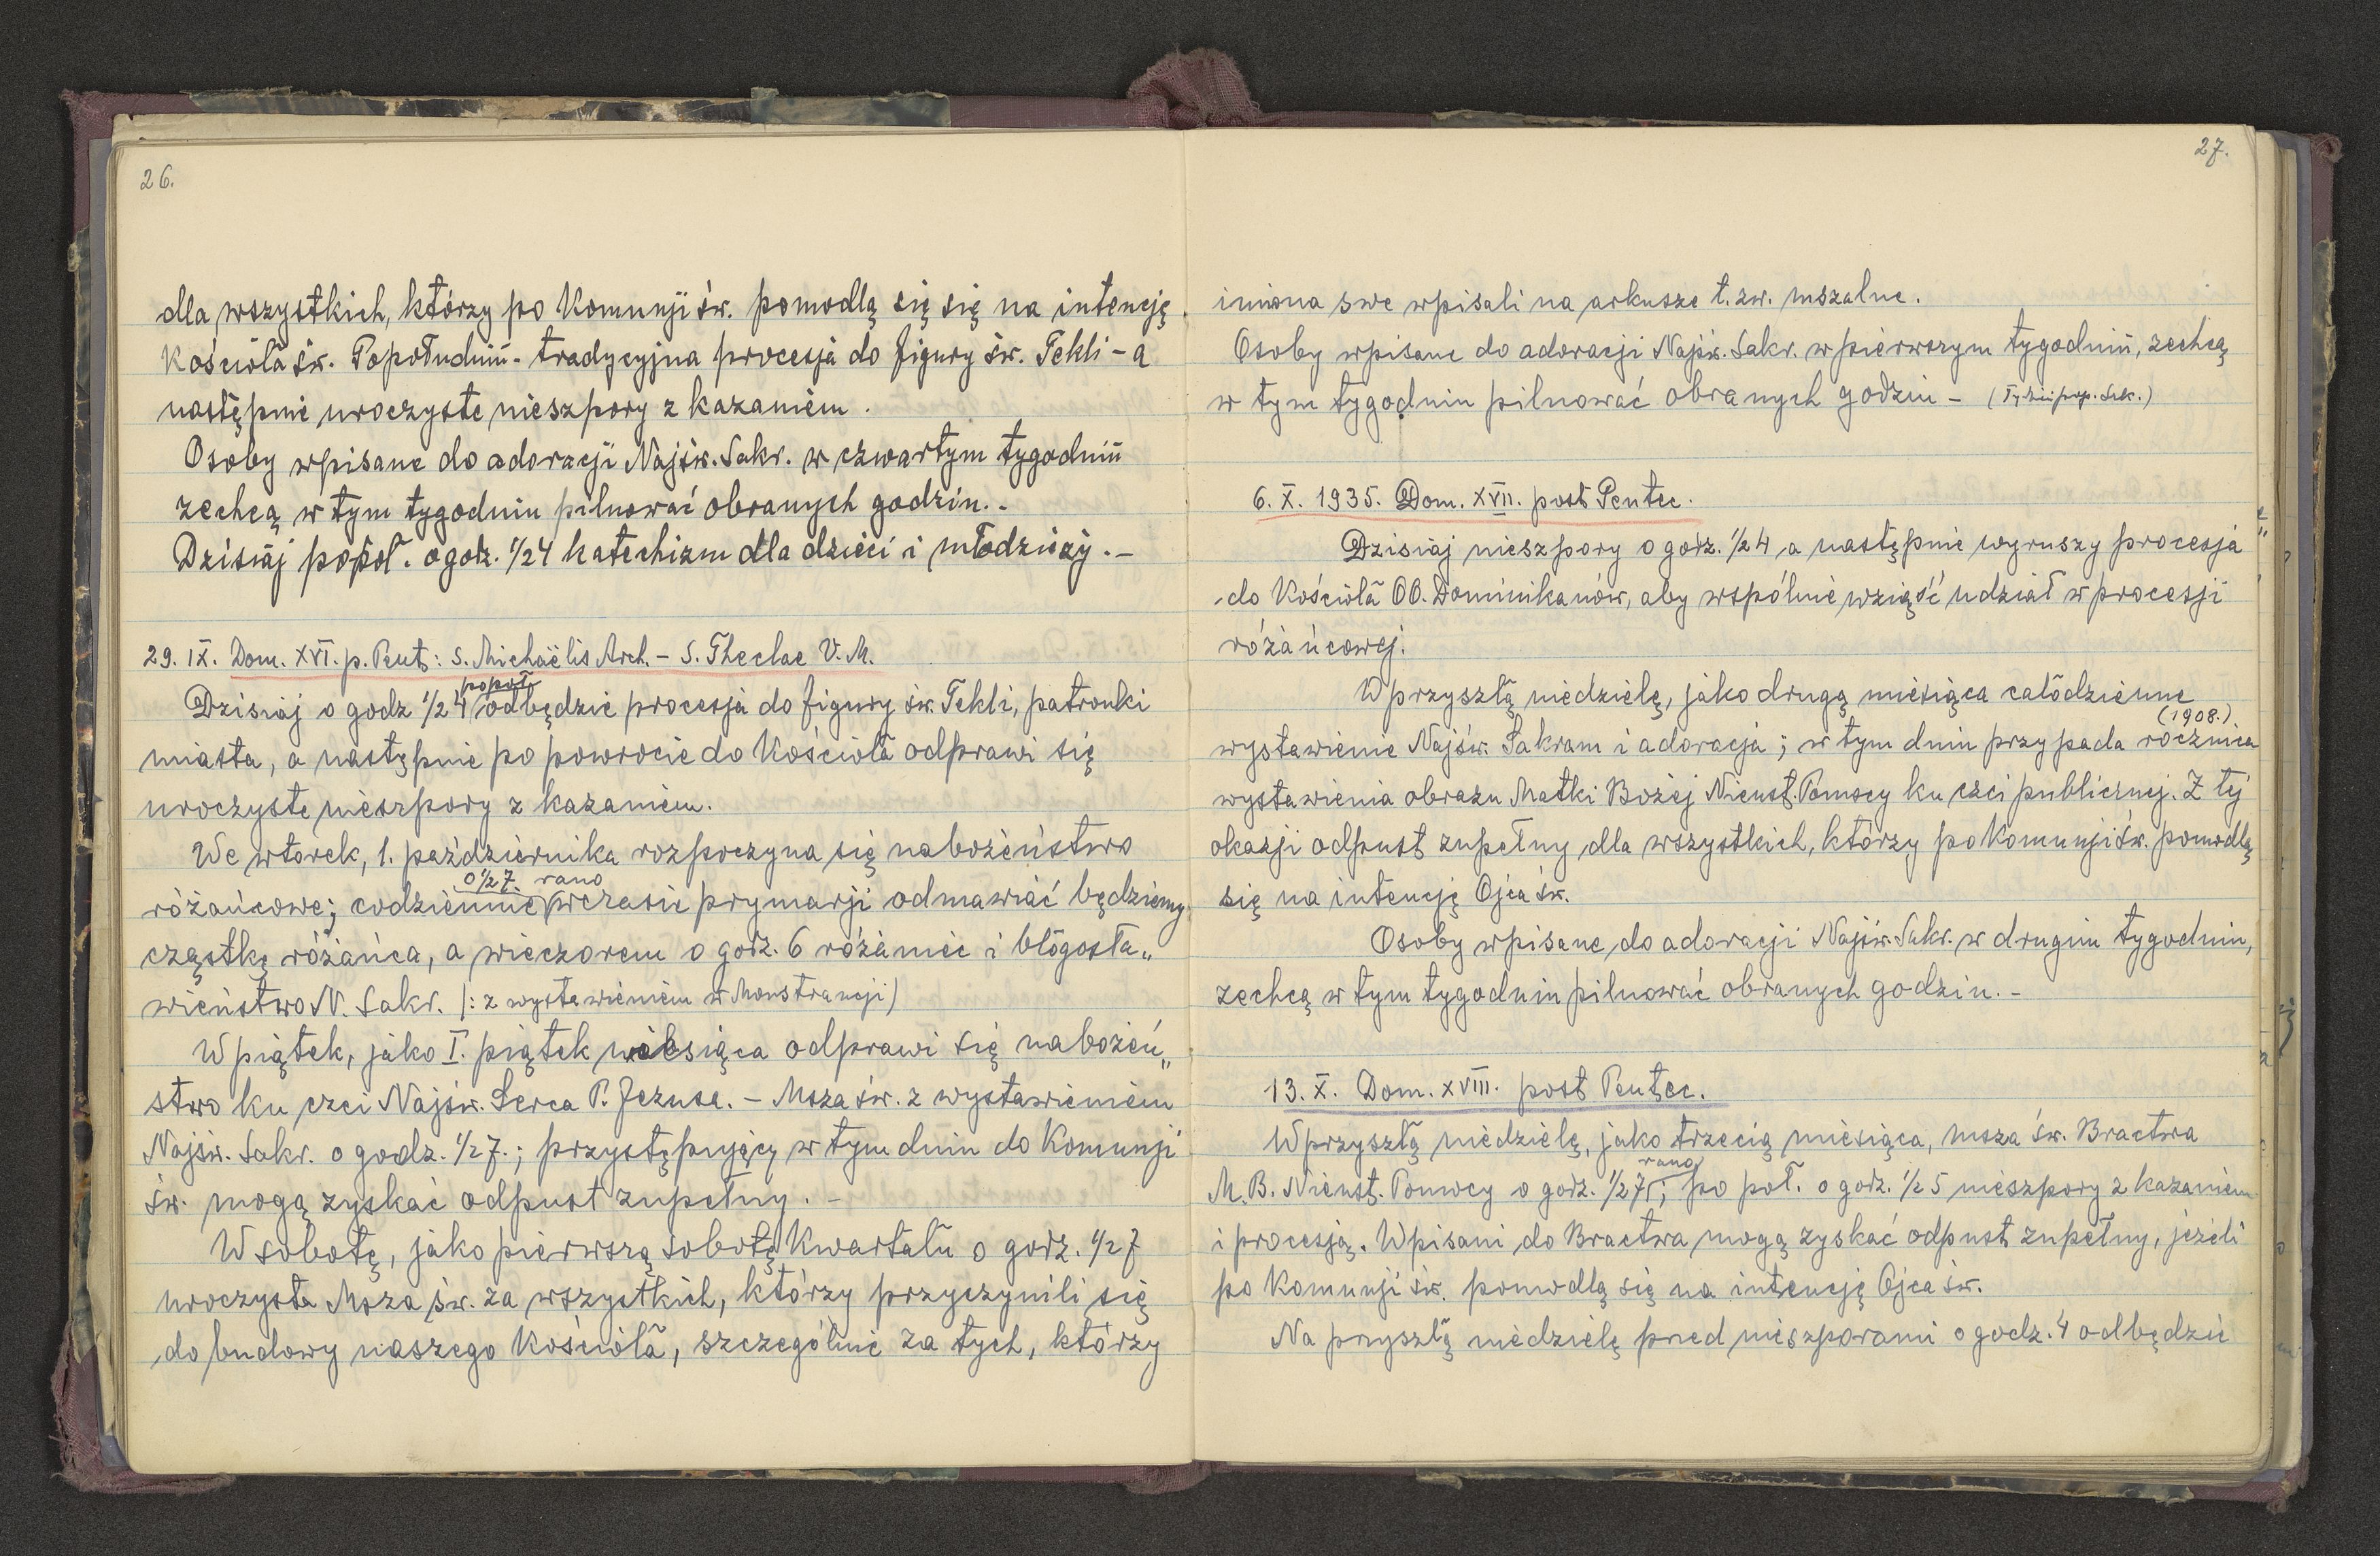 26.
dla wszystkich, którzy po Komunji św. pomodlą się się na intencję
Kościoła św. Popołudniu - tradycyjna procesja do figury św. Tekli - a
następnie uroczyste nieszpory z kazaniem.
Osoby wpisane do adoracji Najśw. Sakr. w czwartym tygodniu
zechcą w tym tygodniu pilnować obranych godzin. -
Dzisiaj popoł. o godz. 1/2 4 katechizm dla dzieci i młodzieży. -
29. IX. Dom. XVI. p. Pent: S. Michaëlis Arch. - S. Theclae V. M.
popoł.
Dzisiaj o godz 1/2 4 odbędzie procesja do figury św. Tekli, patronki
miasta, a następnie po powrocie do Kościoła odprawi się
uroczyste nieszpory z kazaniem.
We wtorek, 1. października rozpoczyna się nabożeństwo
o 1/2 7. rano
różańcowe; codziennie w czasie prymarji odmawiać będziemy
cząstkę różańca, a wieczorem o godz. 6 różaniec i błogosła„
wieństwo N. Sakr. /: z wystawieniem w Monstrancji)
W piątek, jako I. piątek miesiąca odprawi się nabożeń„
stwo ku czci Najśw. Serca P. Jezusa. - Msza św. z wystawieniem
Najśw. Sakr. o godz. 1/2 7.; przystępujący w tym dniu do Komunji
św. mogą zyskać odpust zupełny. -
W sobotę, jako pierwszą sobotę Kwartału o godz. 1/2 7
uroczysta Msza św. za wszystkich, którzy przyczynili się
do budowy naszego Kościoła, szczególnie za tych, którzy
27.
imiona swe wpisali na arkusze t. zw. mszalne.
Osoby wpisane do adoracji Najśw. Sakr. w pierwszym tygodniu, zechcą
w tym tygodniu pilnować obranych godzin -
6. X. 1935. Dom. XVII. post Pentec.
Dzisiaj nieszpory o godz. 1/2 4, a następnie wyruszy procesja
do Kościoła OO. Dominikanów, aby wspólnie wziąść udział w procesji
różańcowej.
W przyszłą niedzielę, jako drugą miesiąca całodzienne
(1908.)
wystawienie Najśw. Sakram i adoracja; w tym dniu przypada rocznica
wystawienia obrazu Matki Bożej Nieust. Pomocy ku czci publicznej. Z tej
okazji odpust zupełny dla wszystkich, którzy po Komunji św. pomodlą
się na intencję Ojca św.
Osoby wpisane do adoracji Najśw. Sakr. w drugim tygodniu,
zechcą w tym tygodniu pilnować obranych godzin. -
13. X. Dom. XVIII. post Pentec.
W przyszłą niedzielę, jako trzecią miesiąca, msza św. Bractwa
rano
M. B. Nieust. Pomocy o godz. 1/2 7; po poł. o godz. 1/2 5 nieszpory z kazaniem
i procesją. Wpisani do Bractwa mogą zyskać odpust zupełny, jeżeli
po Komunji św. pomodlą się na intencję Ojca św.
Na przyszłą niedzielę przed nieszporami o godz. 4 odbędzie